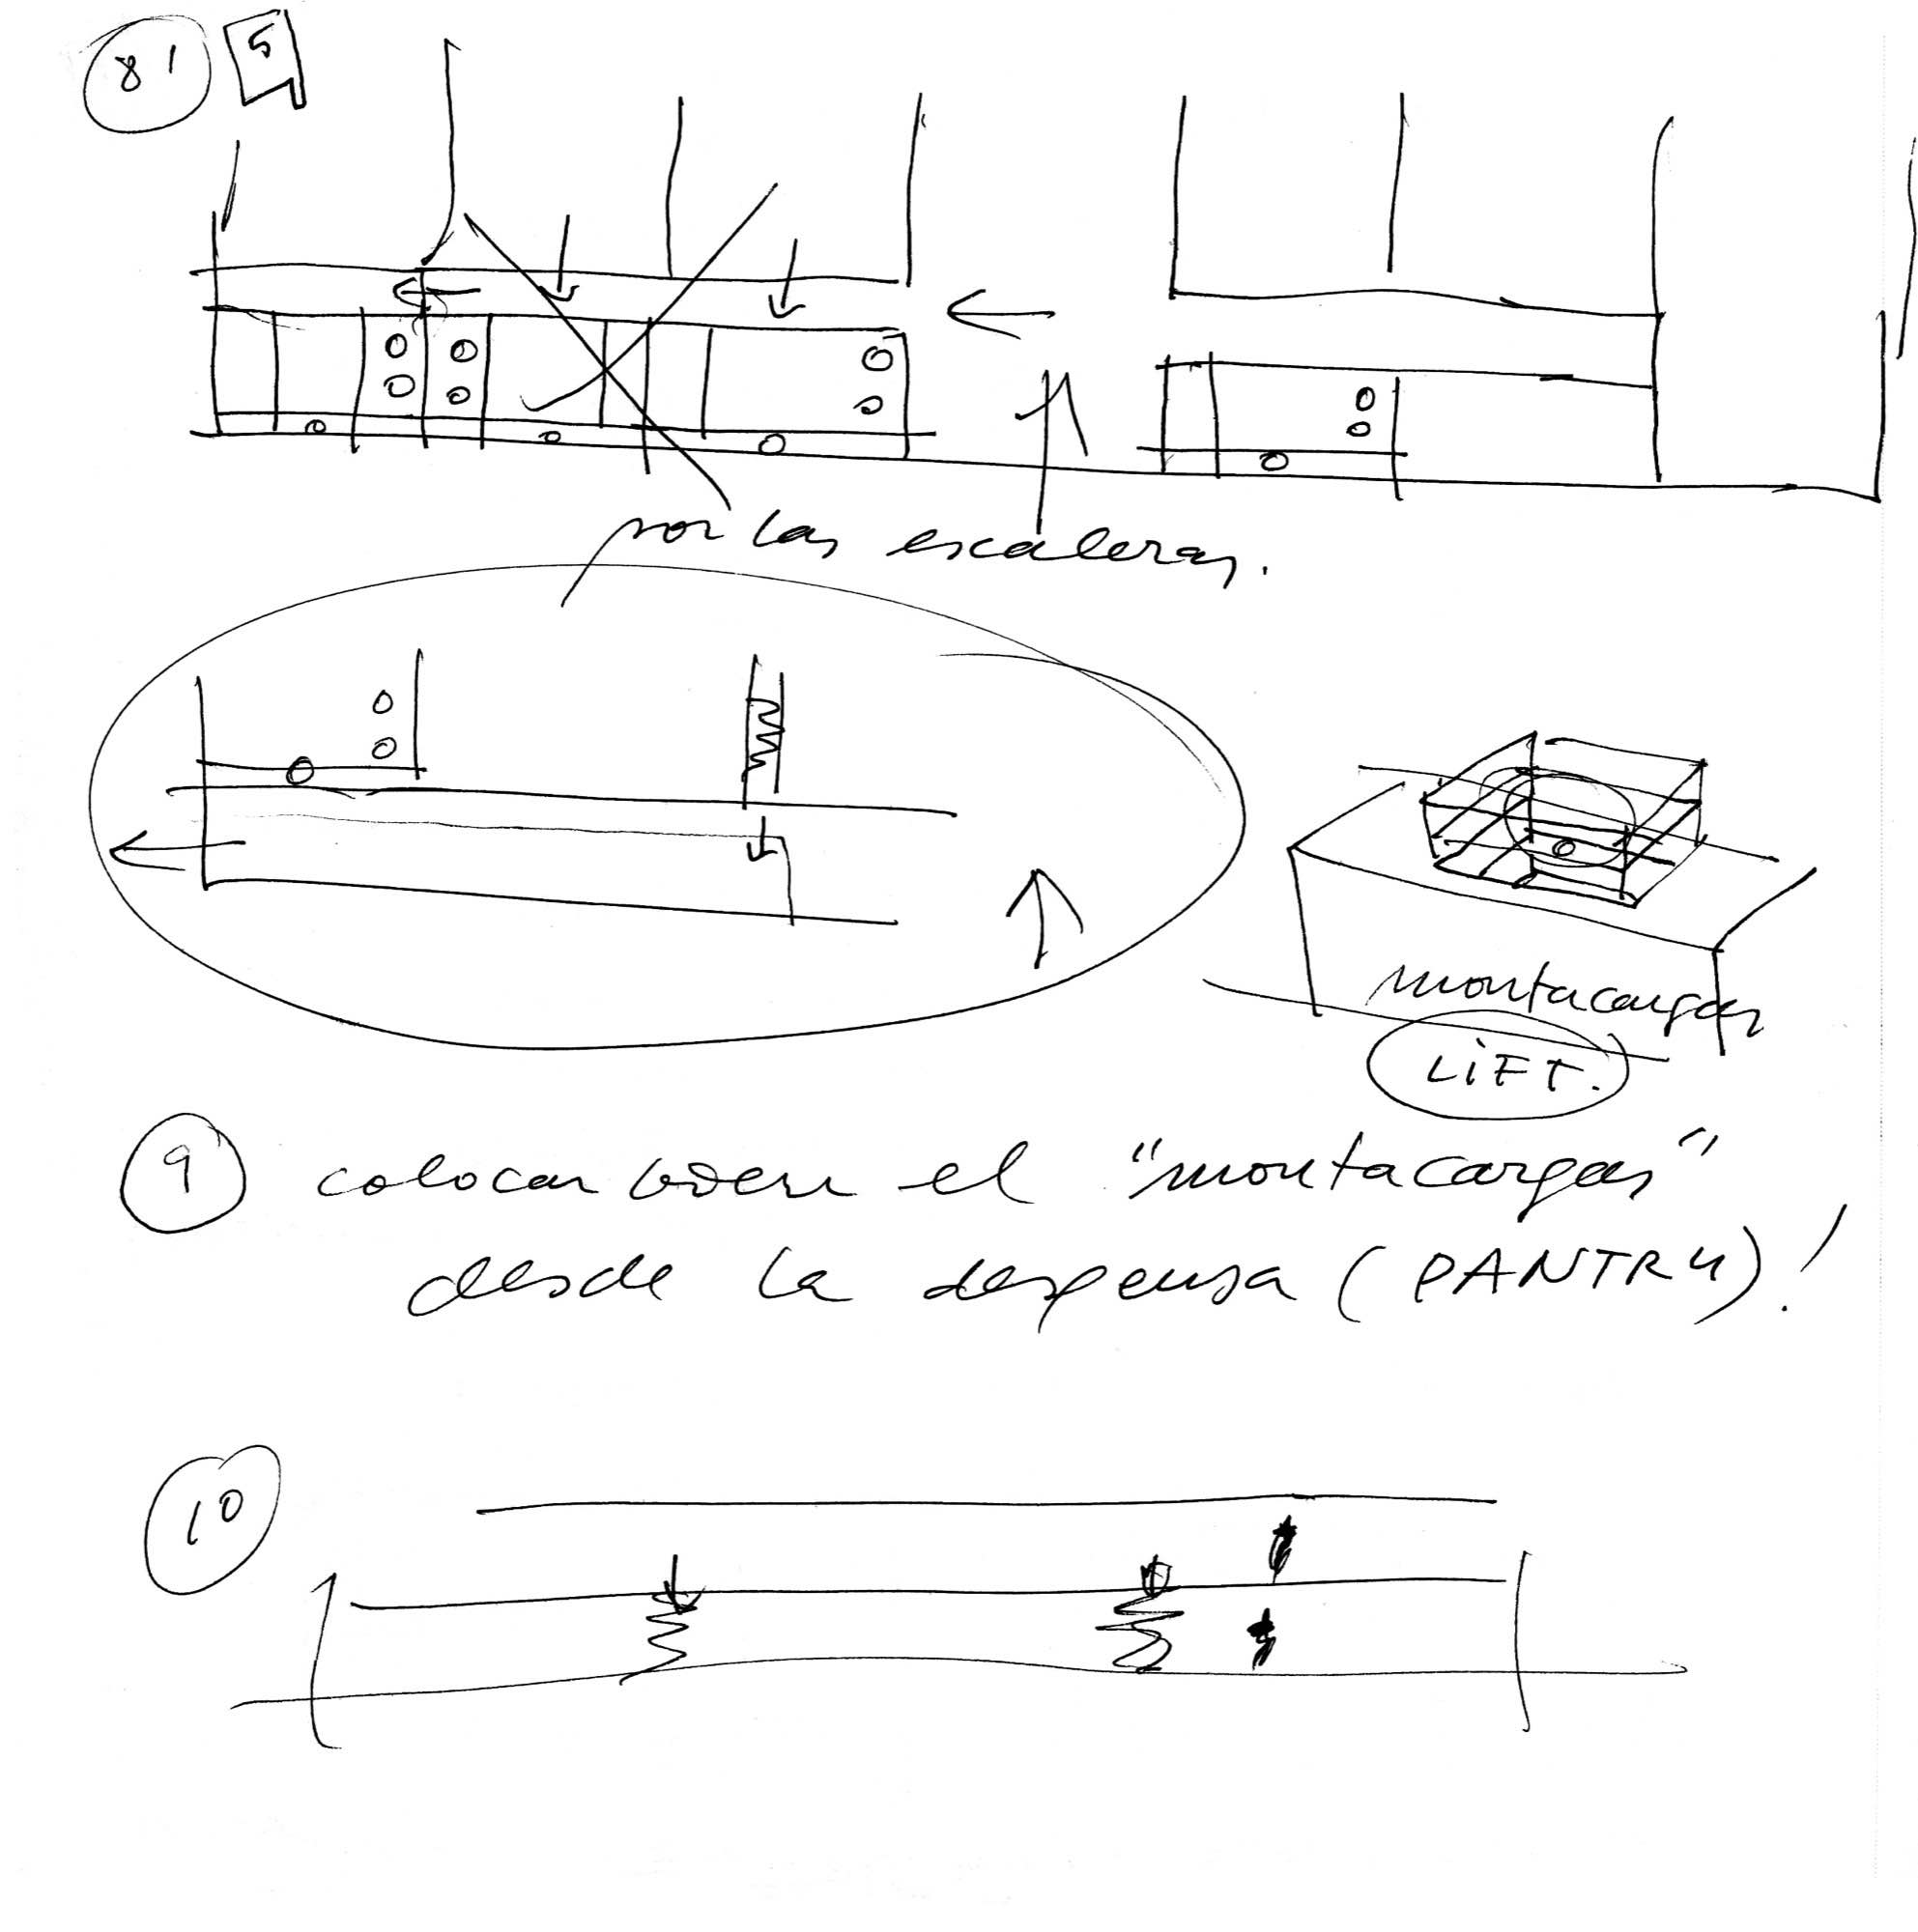 8' 5
por las escaleras.
montacargas
LIFT.
9 colocar bien el "montacargas"
desde la despensa (PANTRY)!
10